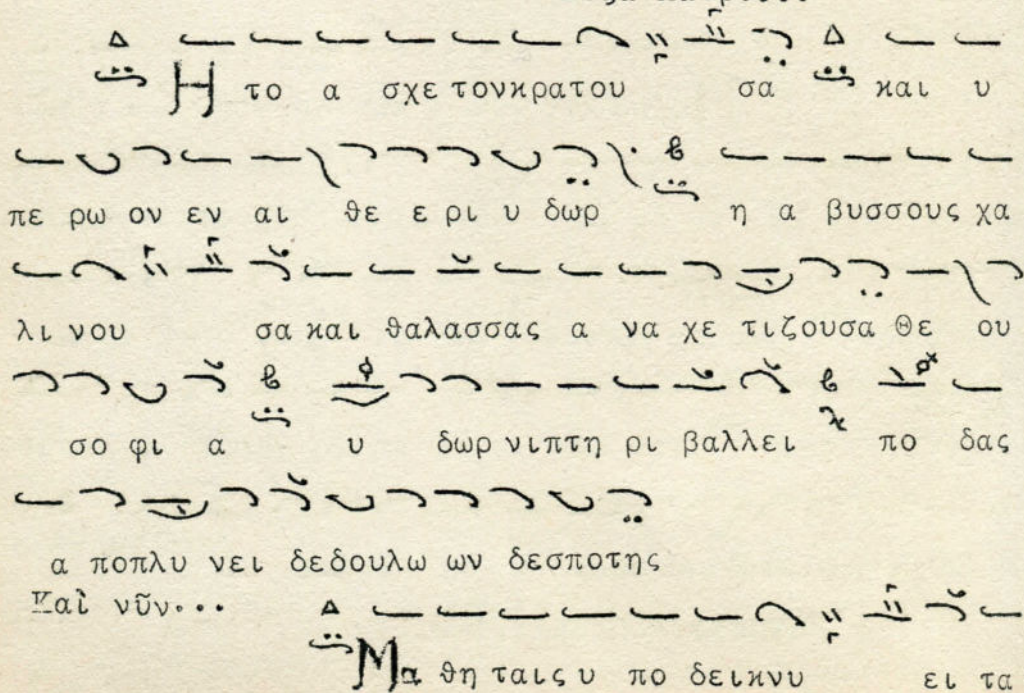 Η το α σχε τον κρατου σα και υ
πε ρω ον εν αι θε ε ρι υ δωρ η α βυσσους χα
λι νου σα και θαλασσας α να χε τιζουσα Θε ου
σο φι α υ δωρ νιπτη ρι βαλλει πο δας
α ποπλυ νει δε δουλω ων δεσποτης
Καὶ νῦν...
Μα θη ταις υ πο δεικνυ ει τα